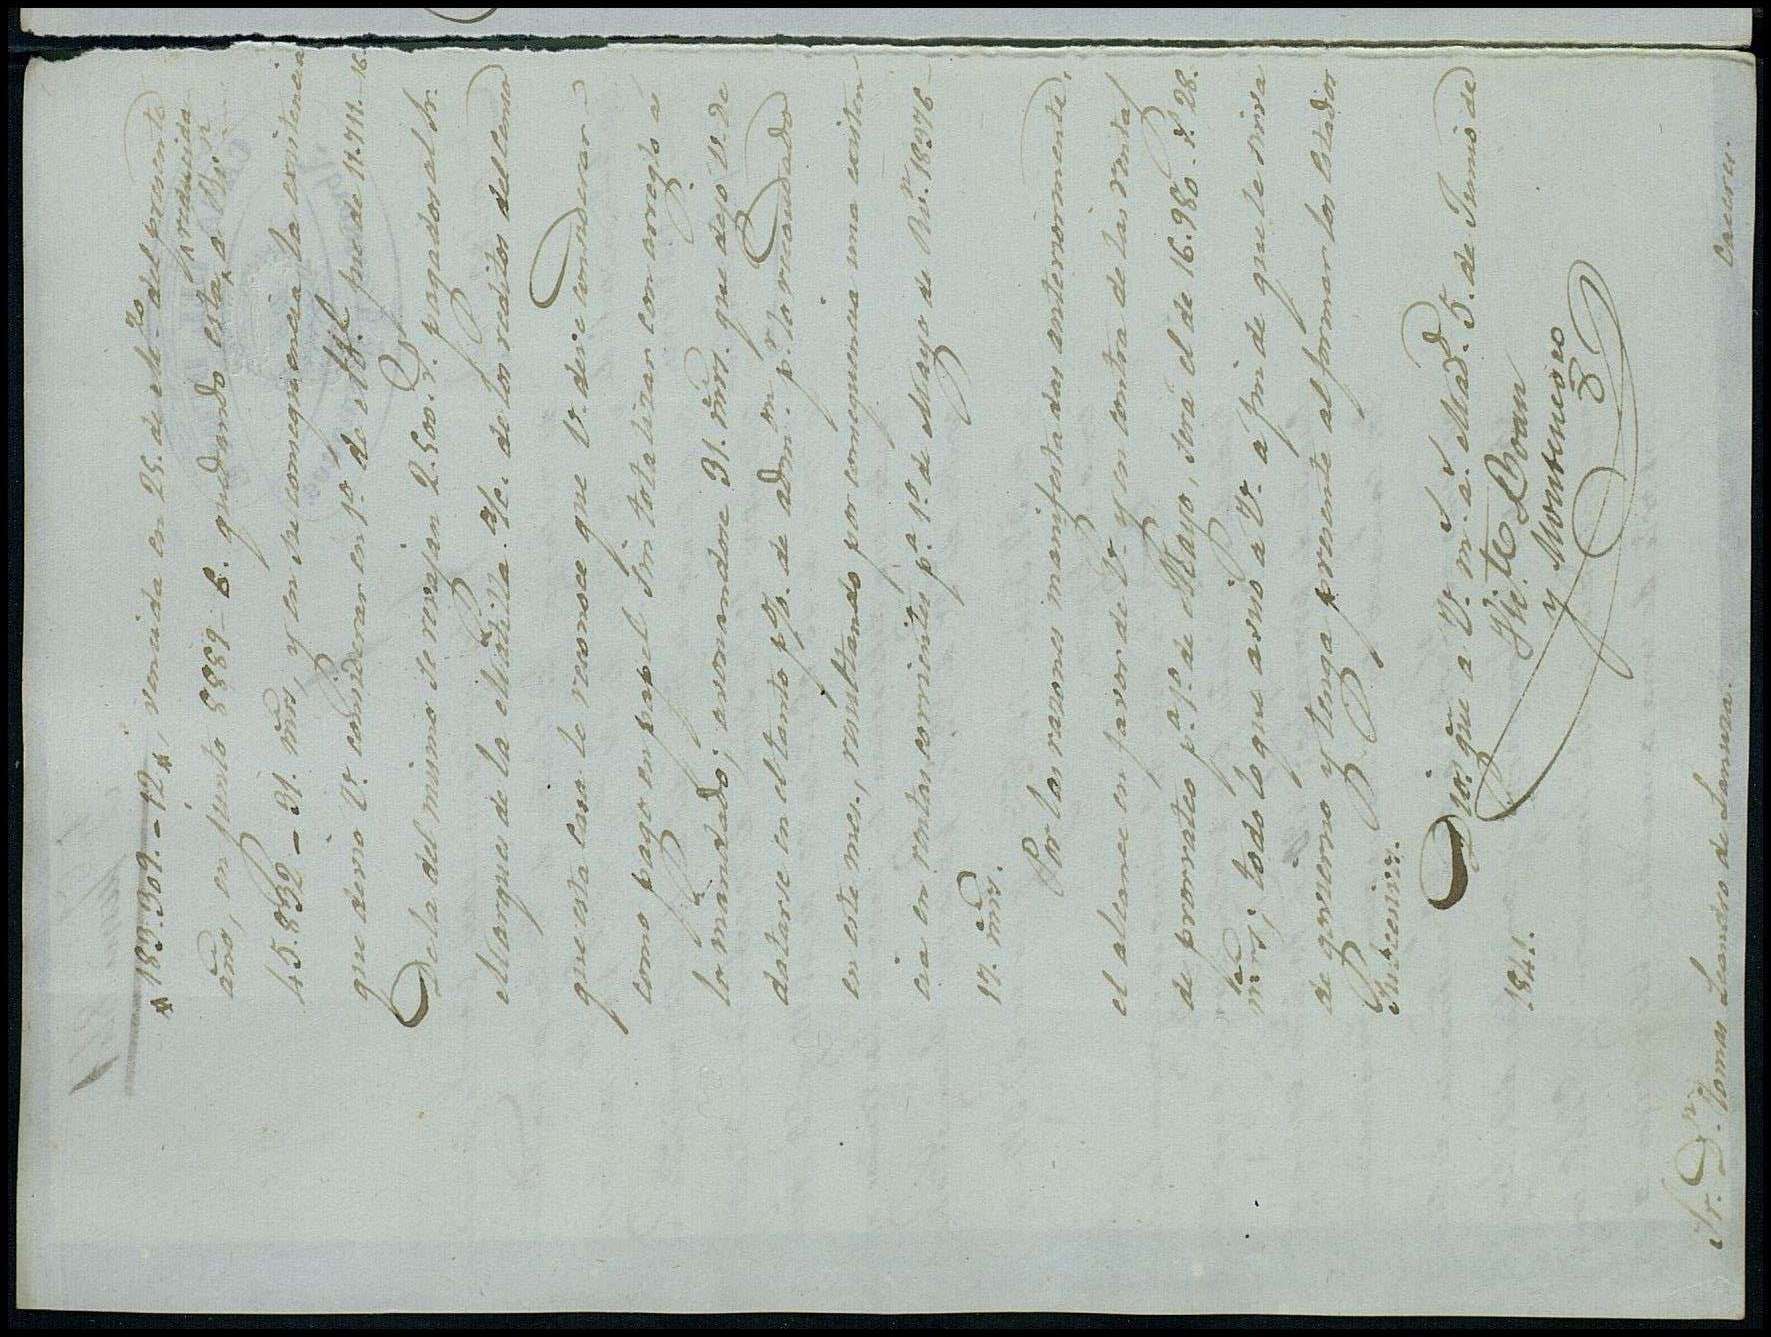 183.309.-12, vencida en 25. de Marzo del presente
año, en junto 5559-6. quedando esta reducida a Rs. vn
45.832-31. mrs, y en su consequencia la existencia
que devio V. considerar en 1º. de Abril fue de 11.711.-16.
De la del mismo se revajan 2.500. rs. pagados al Sr.
Marques de la Matilla á/c. de los reditos del censo
que esta Casa le reconoce que V. deve considerar
como pago en papel sin totalizar con arreglo a
lo mandado; aromandose 31. mrs. que dejo V. de
datarse en el tanto p%. de admon. pr. lo recaudado
en este mes, resultando por consequencia una existen
cia en rentas corrientes pa. 1º. de Mayo de Rvn. 18.976
17. mrs.
Por las razones manifestadas anteriormente,
el alcance en favor de V. y en contra de las rentas
de prorrateo pa. 1º. de Mayo, será el de 16.980. rs. 28.
mrs; todo lo que aviso a V. a fin de que le sirva
de govierno y tenga presente al formar los Estados
subcesivos.
Dios gue a V. ms. as. Madd. 5. de Junio de
1841.
Vte. Joan
y Montenegro
Sr. Dn. Tomas Leandro de Lanuza. Caceres.